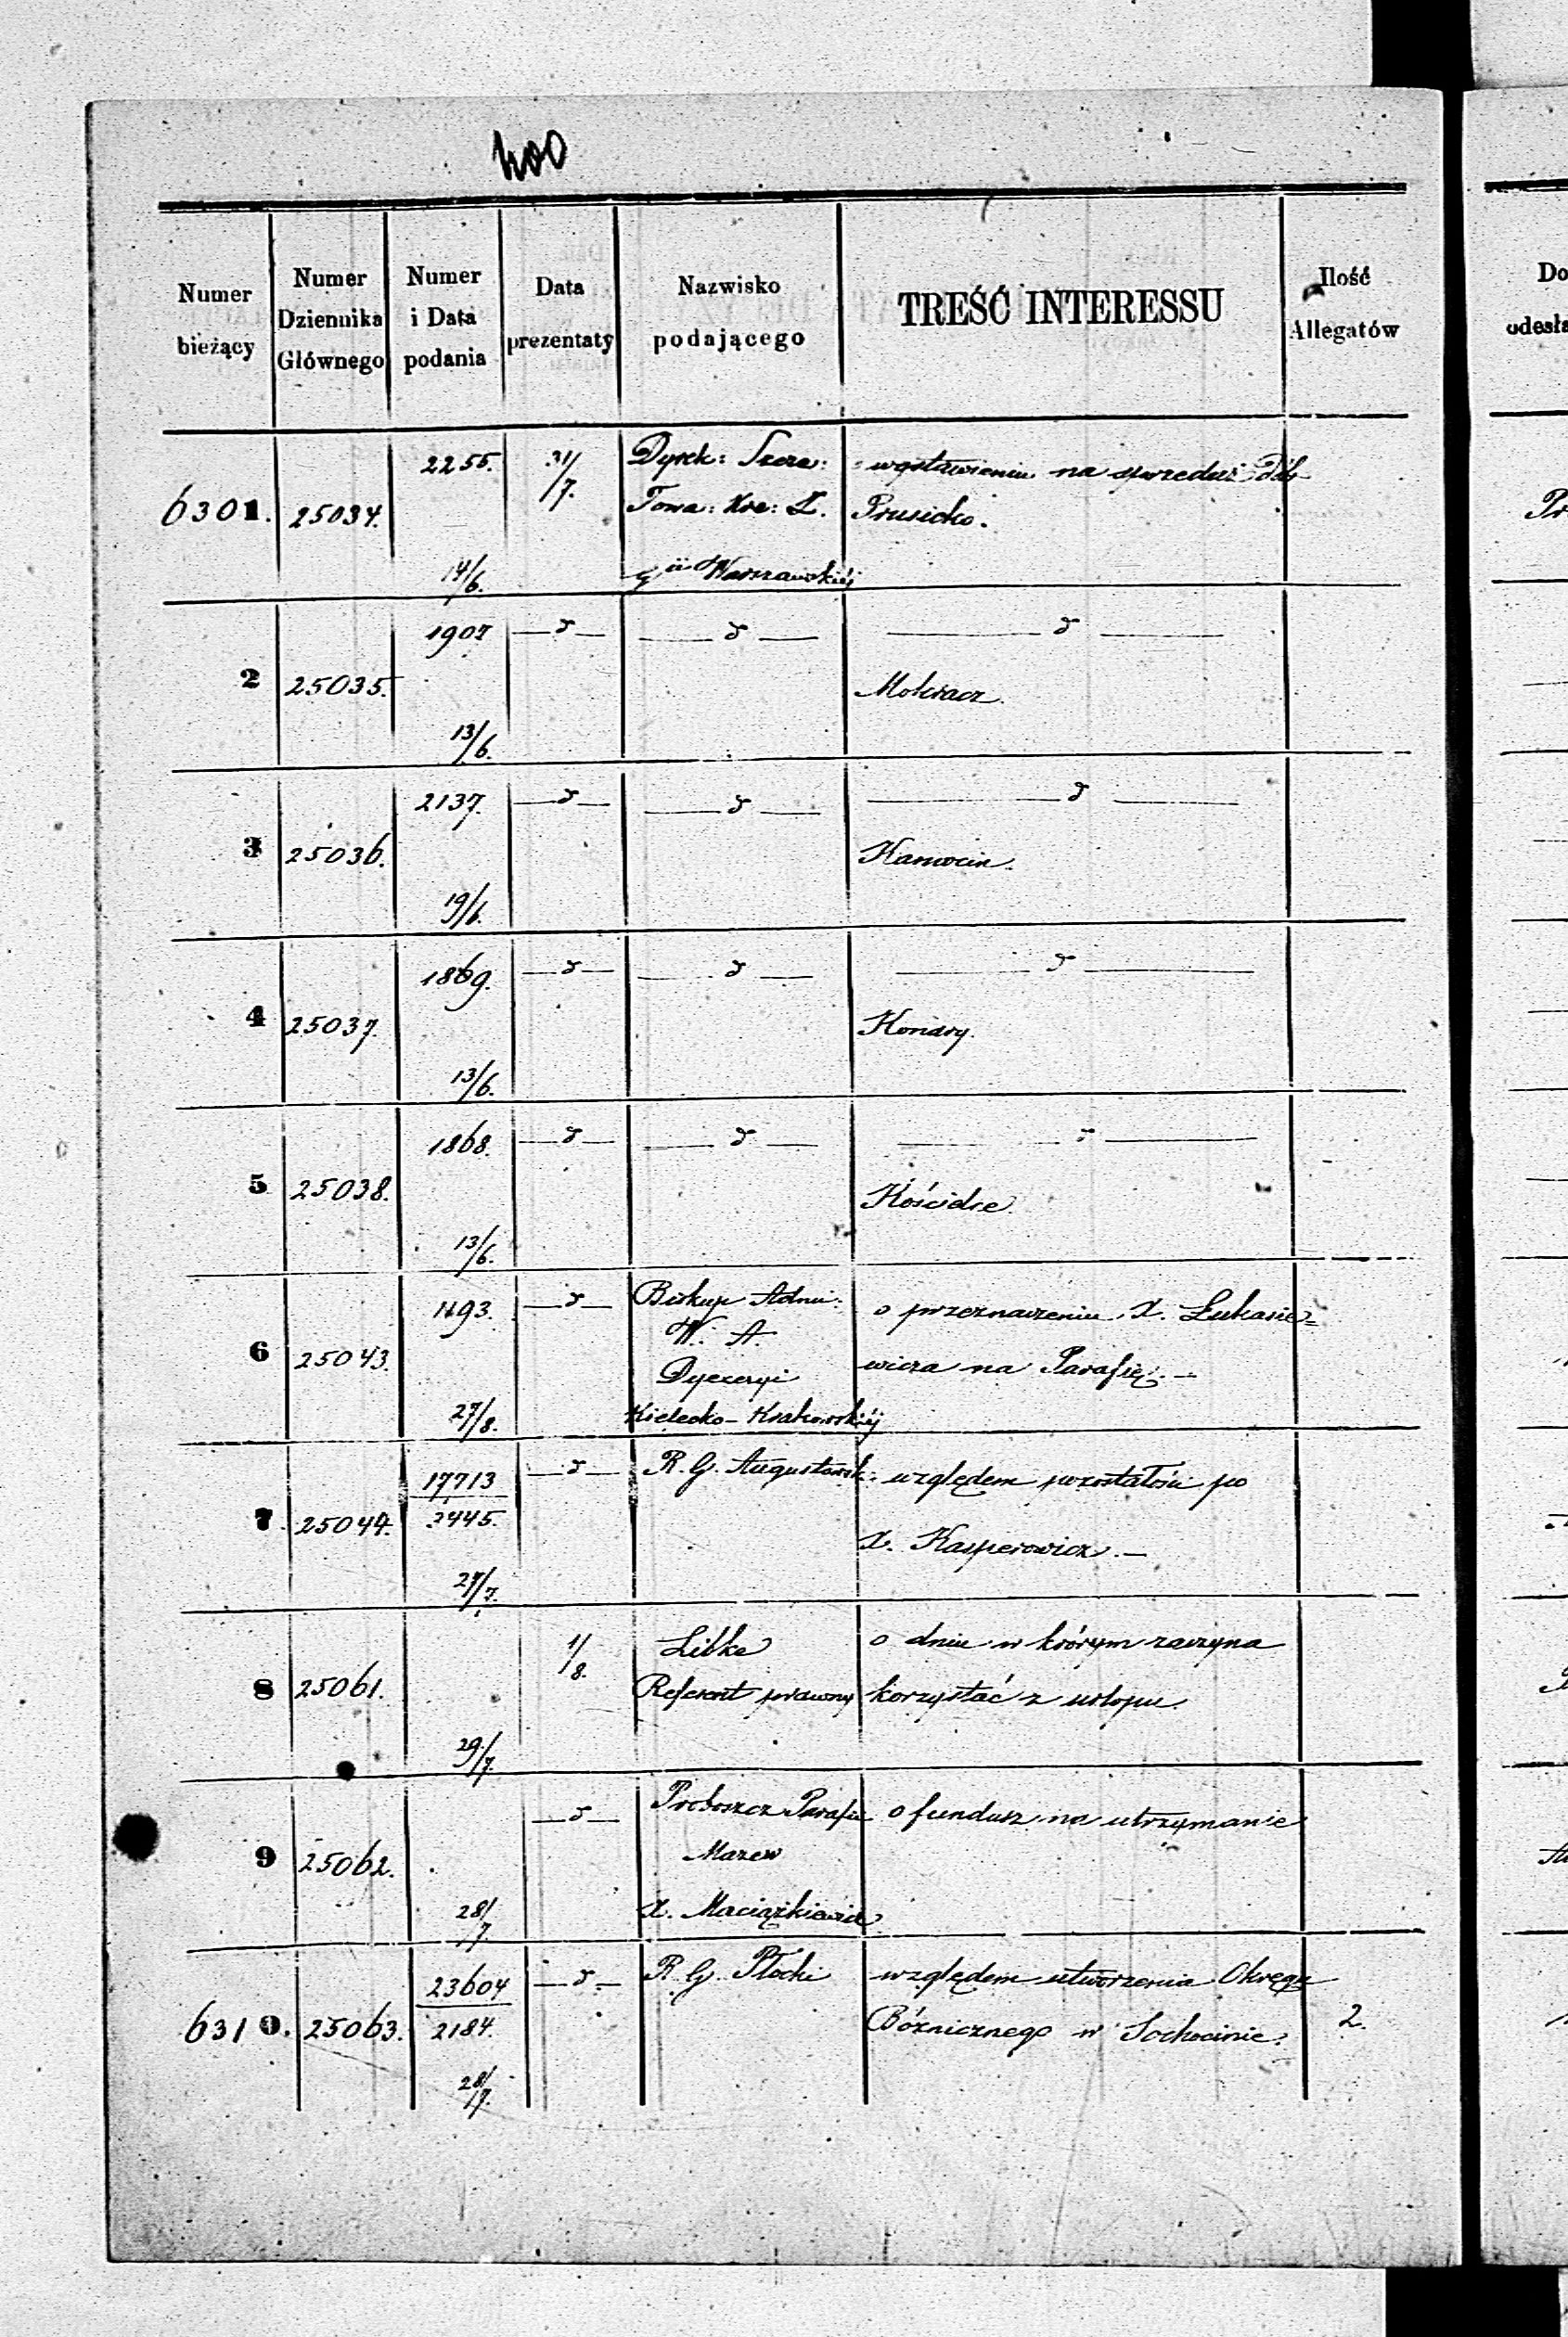 400
Numer bieżący
Numer Dziennika Głównego
Numer i Data podania
Data prezentaty
Nazwisko podającego
TREŚĆ INTERESSU
Ilość Allegatów
Do
odesła
6301. 25034. 2255. 14/6. 31/7. Dyrek: Szcze: Towa: Kre: Z. Gii Warszawskiéj
wystawieniu na sprzedaż Dób
Prusicko.
2 25035. 1907 13/6. —d— —d— —d—
Mokracz.
3 25036. 2137. 19/6. —d— —d— —d—
Kamocin.
4 25037. 1869. 13/6. —d— —d— —d—
Konary.
5 25038. 1868. 13/6. —d— —d— —d—
Kościelce
6 25043. 1693. 27/8. —d— Biskup Admi: W. A. Dyecezyi Kielecko-Krakowskiéj
o przeznaczeniu X. Łukasie=
wicza na Parafię. —
7. 25044. 17713 3445. 27/7. —d— R. G. Augustowsk:
względem pozostałości po
X. Kasperowicz. —
8 25061. 29/7. 1/8. Libke Referent prawny
o dniu w którym zaczyna
korzystać z urlopu.
9 25062. 28/7 —d— Proboszcz Parafii Mazew X. Maciążkiewicz
o fundusz na utrzymanie
6310. 25063. 23604 2184. 28/7. —d— R. G. Płocki
względem utworzenia Okręgu
Bóżnicznego w Sochocinie.
2.